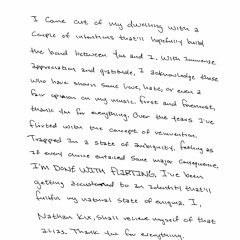 I Come out of my dwelling with a
Couple of intentions that'll hopefully build
the bond between you and I. With Immense
Appreciation and gratitude, I acknowledge those
who have shown some love, hate, or even a
fair opinion on my music. first and foremost,
thank you for everything. Over the years I've
flirted with the concept of reinvention.
Trapped in a state of ambiguity, feeling as
if every choice entailed some major consequence.
I'M DONE WITH FLIRTING. I've been
getting accustomed to an Identity that'll
fulfill my natural state of enigma. I,
Nathan Kix, shall relieve myself of that
alias. Thank you for everything.